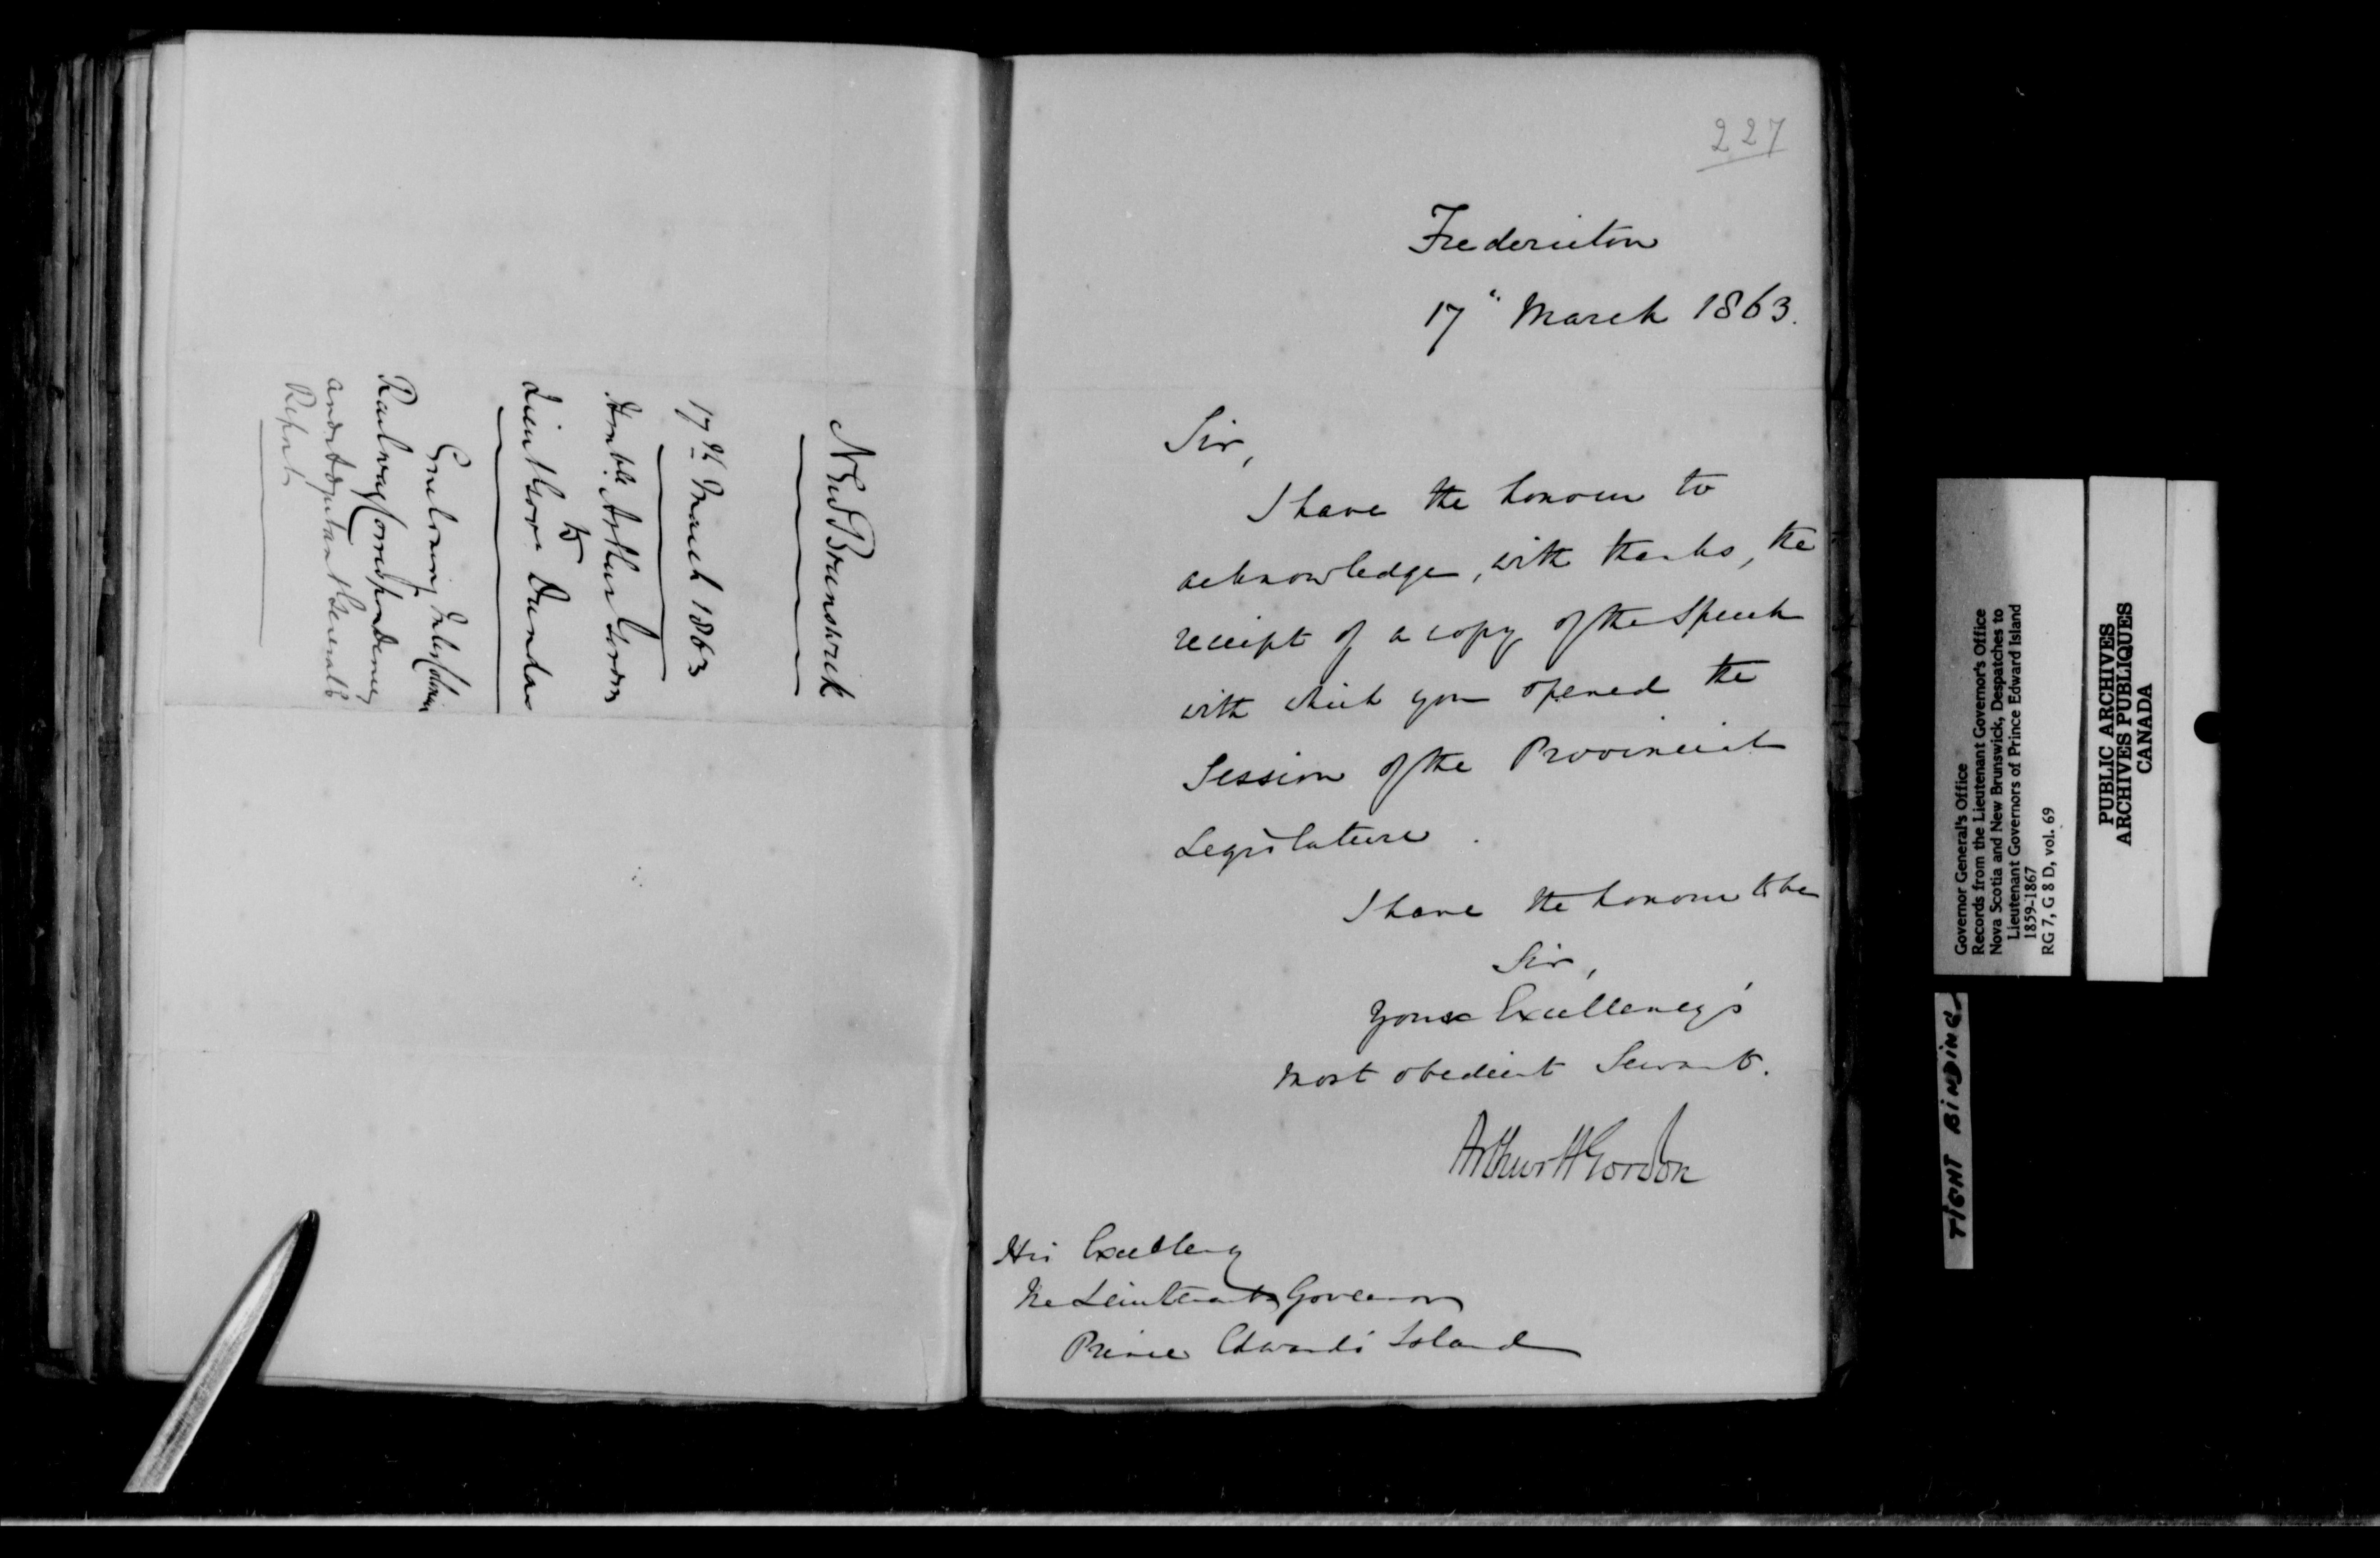 New Brunswick
17th March 1863
Honble Arthur Gordon
to
Lieut Govr Dundas
Enclosing InterColonial
Railway Correspondence
and Adjutant General's
Report
227
Fredericton
17" March 1863.
Sir,
I have the honour to
acknowledge, with thanks, the
receipt of a copy of the Speech
with which you opened the
Session of the Provincial
Legislature.
I have the honour to be
Sir,
Your Excellency's
most obedient Servant.
Arthur H Gordon
His Excellency
The Lieutenant Governor
Prince Edward's Island
Governor General's Office
Records from the Lieutenant Governor's Office
Nova Scotia and New Brunswick, Despatches to
Lieutenant Governors of Prince Edward Island
1859-1867
RG 7, G 8 D, vol. 69
PUBLIC ARCHIVES
ARCHIVES PUBLIQUES
CANADA
TIGHT BINDING